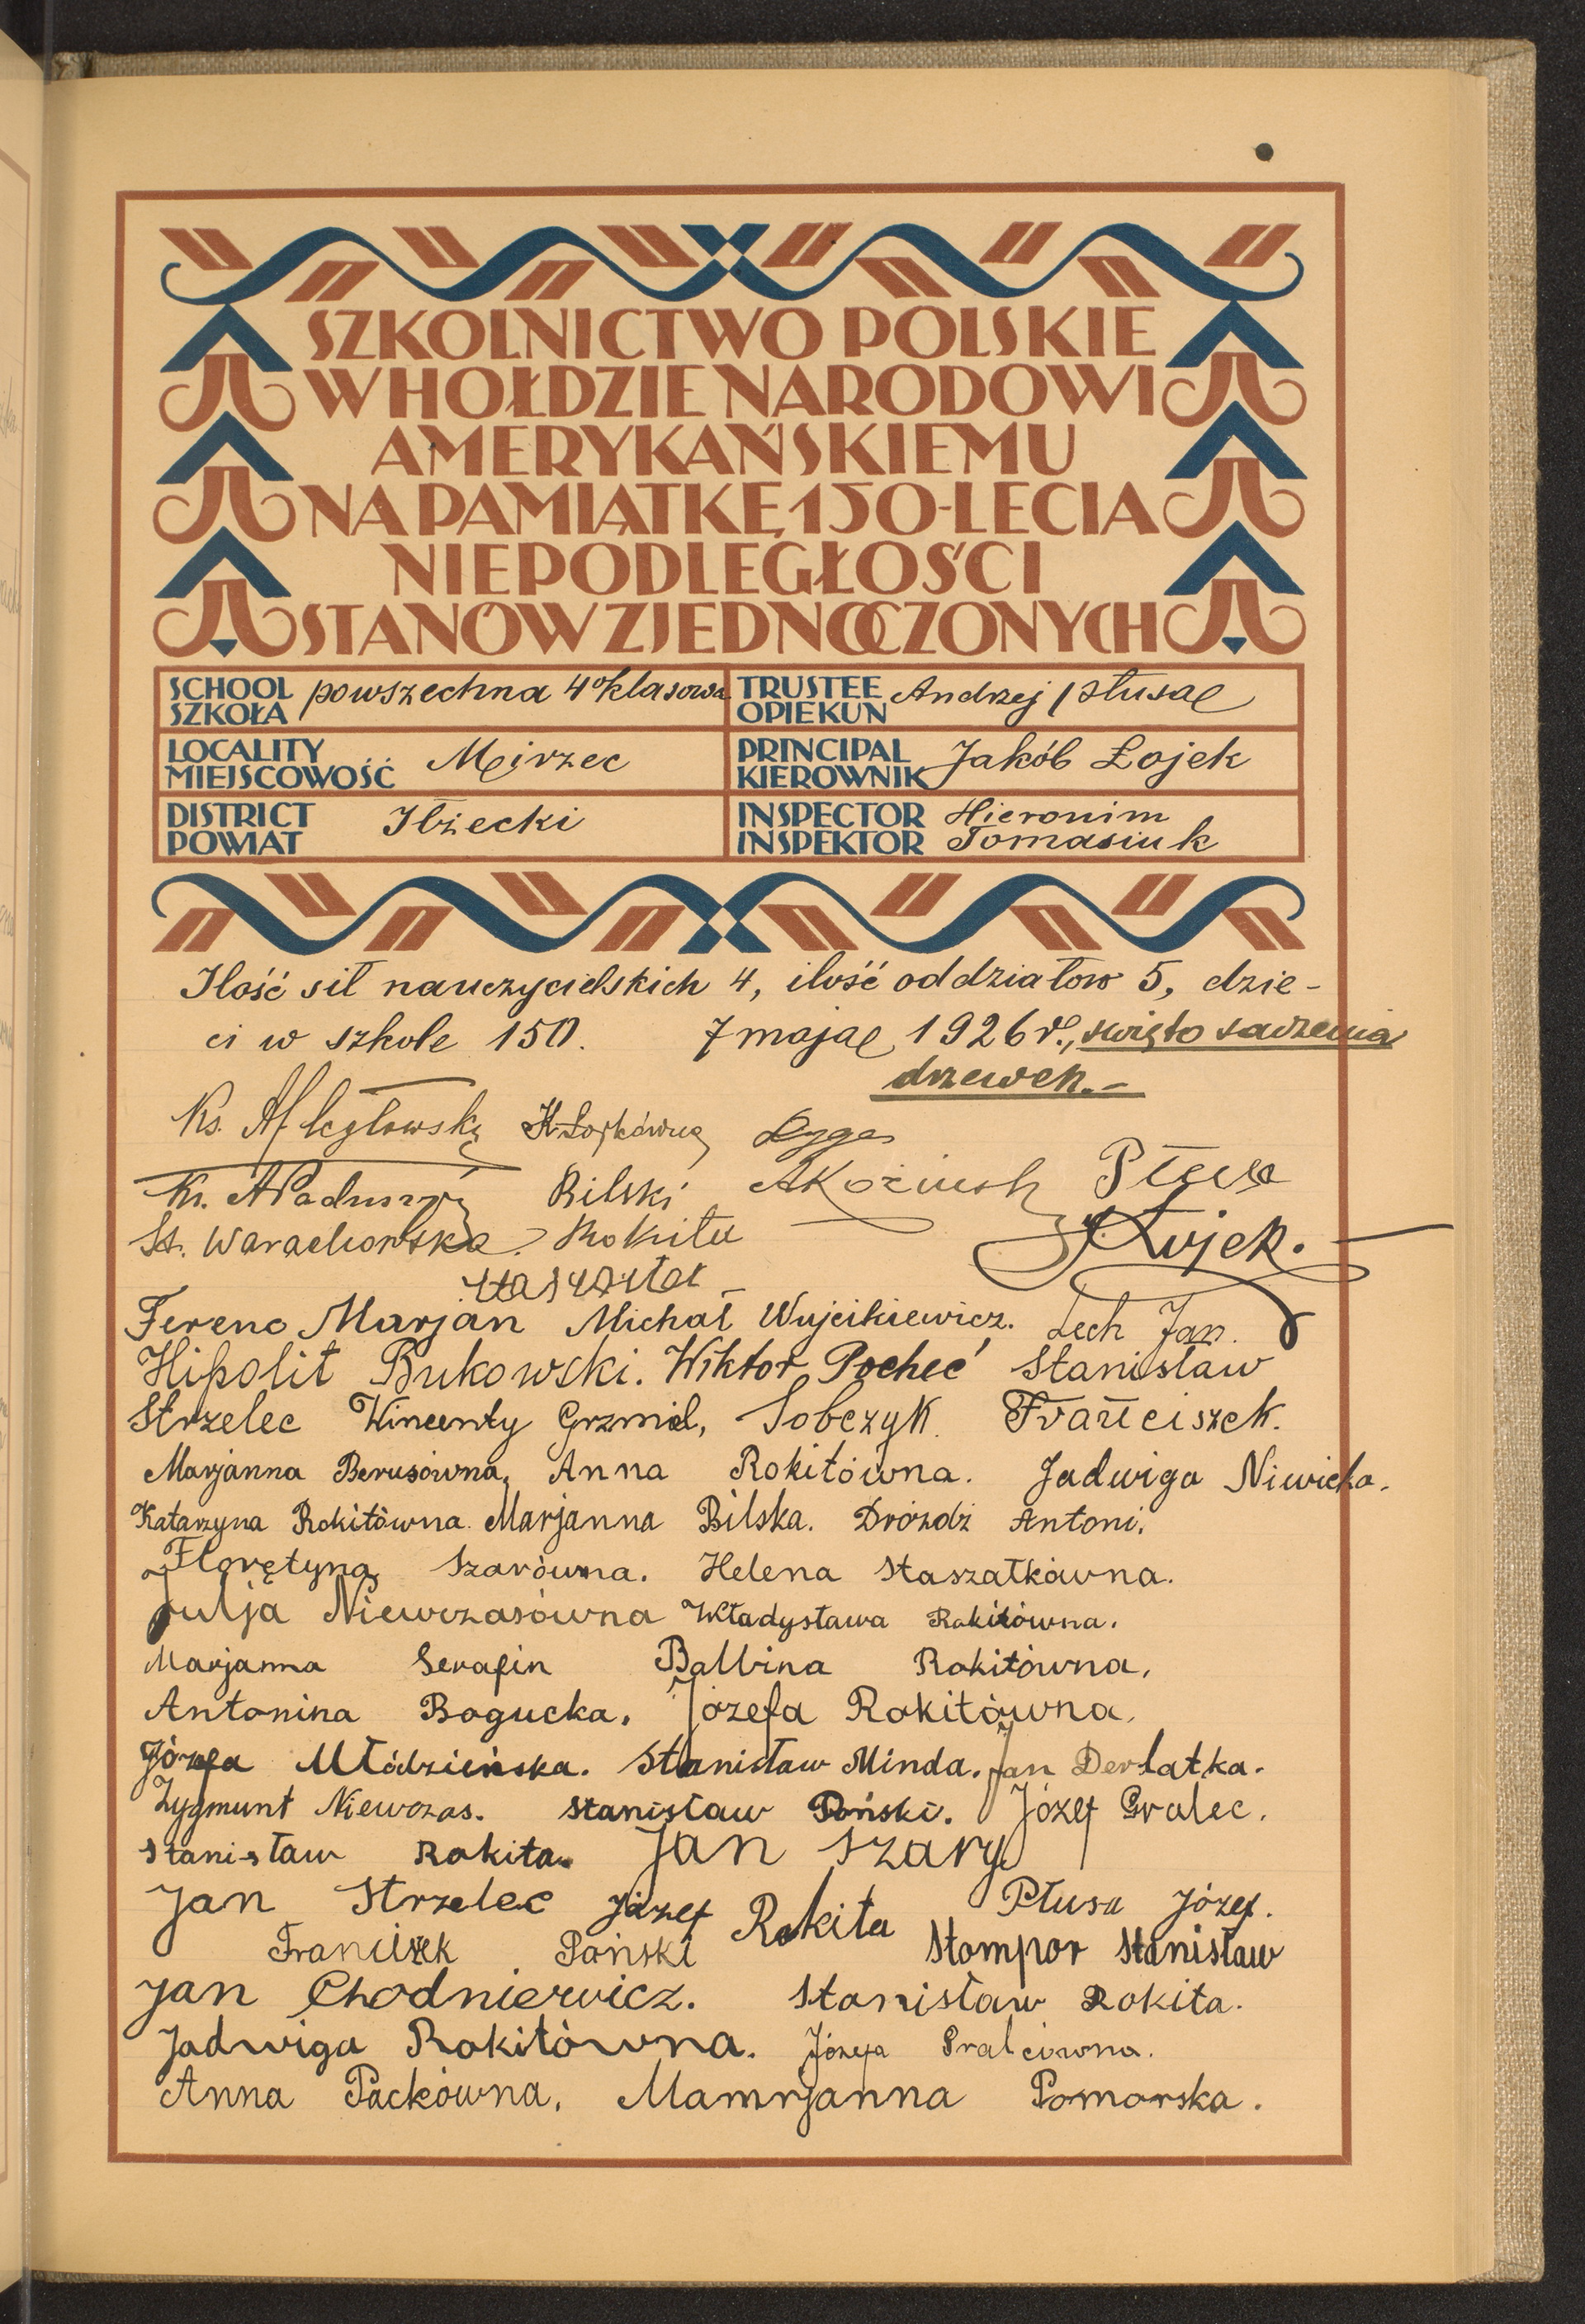 SZKOLNICTWO POLSKIE
W HOŁDZIE NARODOWI
AMERYKAŃSKIEMU
NA PAMIĄTKĘ 150-LECIA
NIEPODLEGŁOŚCI
STANÓW ZJEDNOCZONYCH
SCHOOL SZKOŁA powszechna 4o klasowa
TRUSTEE OPIEKUN Andrzej Płusa
LOCALITY MIEJSCOWOŚĆ Mirzec
PRINCIPAL KIEROWNIK Jakób Łojek
DISTRICT POWIAT Iłżecki
INSPECTOR INSPEKTOR Hieronim Tomasiuk
Ilość sił nauczycielskich 4, ilość oddziałow 5, dzie-
ci w szkole 150. 7 maja 1926 r., święto sadzenia
drzewek.-
Ks. Łojkówna Łyga
Ks. Bilski Płusa
St. Warachowska. Rokita Łojek.
Ferenc Marjan Michał Wujcikiewicz. Lech Jan.
Hipolit Bukowski. Wiktor Pocheć Stanisław
Strzelec Wincenty Grzmil, Sobczyk Franciszek.
Marjanna Berusówna, Anna Rokitówna. Jadwiga Niwicka.
Katarzyna Rokitówna. Marjanna Bilska. Dróżdż Antoni.
Florętyna Szarówna. Helena Staszałkówna.
Julja Niewczasówna Władysława Rokitówna.
Marjanna Serafin Balbina Rokitówna,
Antonina Bogucka. Józefa Rokitówna,
Józefa Młódzieńska. Stanisław Minda. Jan Derlatka.
Zygmunt Niewczas. Stanisław Poński. Józef Gralec.
Stanisław Rokita. Jan Szary
Jan Strzelec Józef Rokita Płusa Józef.
Franciszek Poński Stompor Stanisław
Jan Chodniewicz. Stanisław Rokita.
Jadwiga Rokitówna. Józefa Gralcówna.
Anna Packówna, Mamrjanna Pomorska.